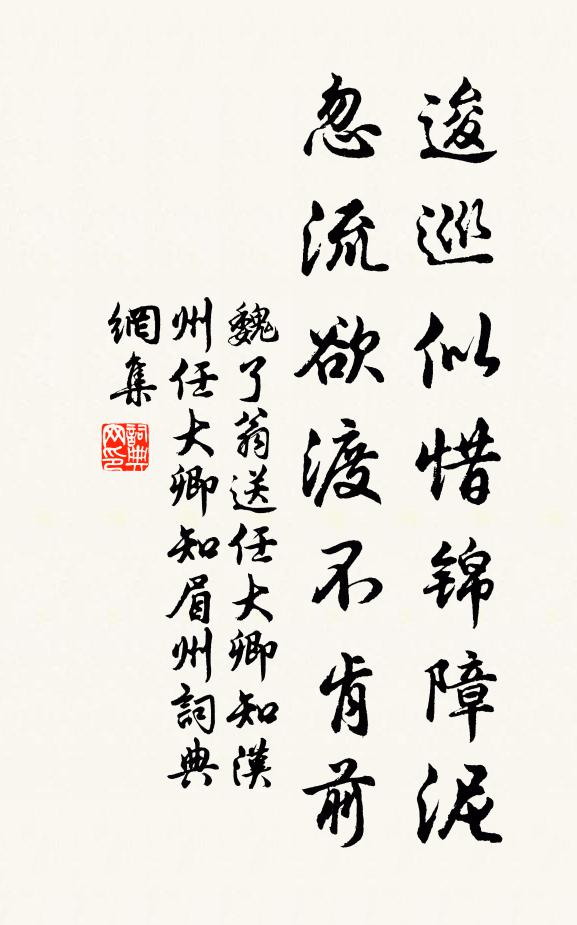 逡巡似惜锦障泥
忽流欲渡不肯前
魏了翁送任大卿知漢
州任大卿知眉州詞典
網集
詞典
网印